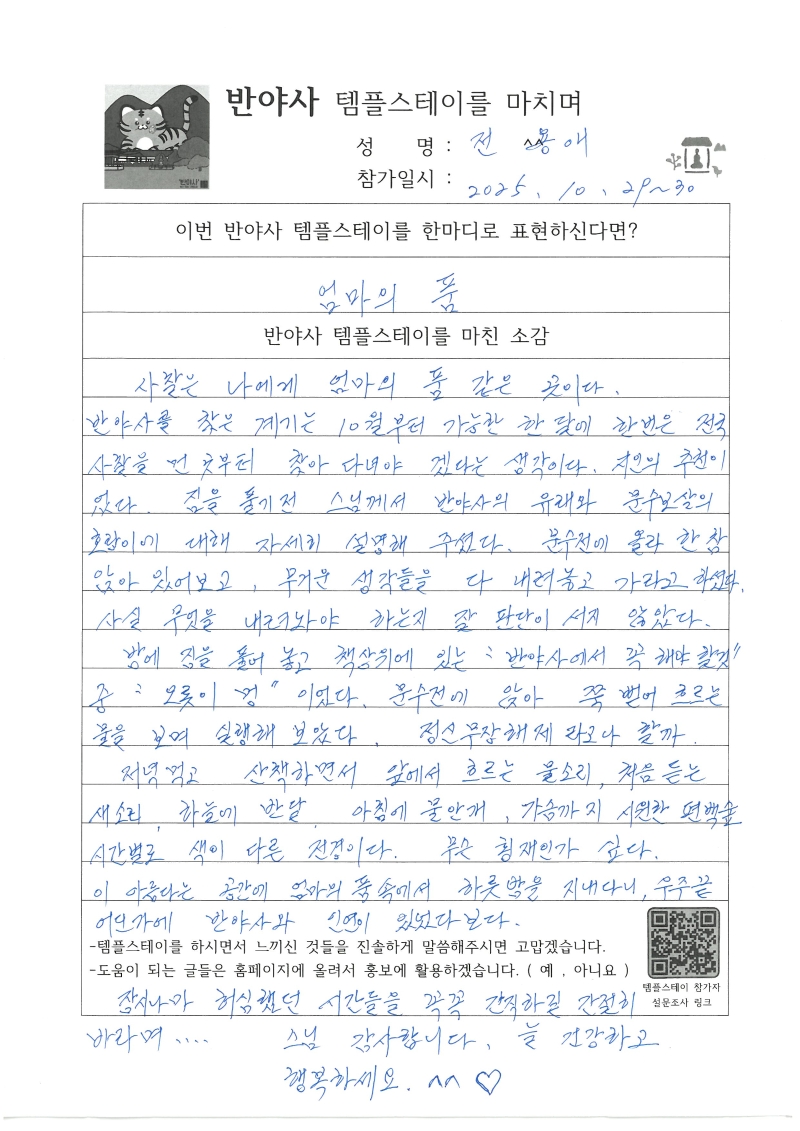 반야사 템플스테이를 마치며
성 명 : 전 용애
참가일시 : 2025. 10. 29~30
이번 반야사 템플스테이를 한마디로 표현하신다면?
엄마의 품
반야사 템플스테이를 마친 소감
사찰은 나에게 엄마의 품 같은 곳이다.
반야사를 찾은 계기는 10월부터 가능한 한 달에 한번은 전국
사찰을 먼 곳부터 찾아 다녀야 겠다는 생각이다. 지인의 추천이
었다. 짐을 풀기전 스님께서 반야사의 유래와 문수보살의
호랑이에 대해 자세히 설명해 주셨다. 문수전에 올라 한참
앉아 있어보고, 무거운 생각들을 다 내려놓고 가라고 하셨다.
사실 무엇을 내려놔야 하는지 잘 판단이 서지 않았다.
밤에 짐을 풀어 놓고 책상위에 있는 "반야사에서 꼭 해야 할것"
중 "오롯이 멍" 이었다. 문수전에 앉아 쭉 뻗어 흐르는
물을 보며 실행해 보았다. 정신무장해제 라고나 할까.
저녁먹고 산책하면서 앞에서 흐르는 물소리, 처음 듣는
새소리, 하늘에 반달, 아침에 물안개, 가슴까지 시원한 편백숲
시간별로 색이 다른 전경이다. 무슨 횡재인가 싶다.
이 아름다는 공간에 엄마의 품속에서 하룻밤을 지내다니, 우주끝
어딘가에 반야사와 인연이 있었다보다.
-템플스테이를 하시면서 느끼신 것들을 진솔하게 말씀해주시면 고맙겠습니다.
-도움이 되는 글들은 홈페이지에 올려서 홍보에 활용하겠습니다. ( 예 , 아니요 )
템플스테이 참가자
설문조사 링크
잠시나마 허심했던 시간들을 꼭꼭 간직하길 간절히
바라며.... 스님 감사합니다. 늘 건강하고
행복하세요. ^^ ♡